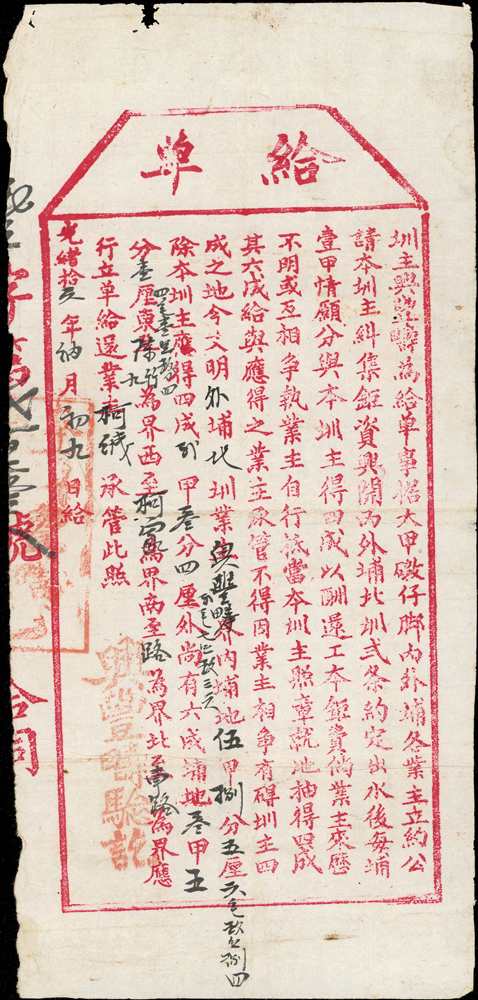 給單
圳主興豐疇為給單事據大甲礮仔腳內外埔各業主立約公
請本圳主糾集鉅資興開內外埔北圳弍条約定出水後每埔
壹甲情願分與本圳主得四成以酬還工本鉅費倘業主來歷
不明或互相争執業主自行抵當本圳主照章就地抽得四成
其六成給與應得之業主承管不得因業主相争有碍圳主四
成之地今丈明外埔北圳業主興豐疇界內埔地伍甲捌分五厘
除本圳主應得四成弍甲叁分四厘外尚有六成埔地叁甲五
分壹厘東至為界西至柯界南至路為界北至車路為界應
行立单給還業主柯承管此照
光緒拾年月初九日給
字第號
合同
興豐疇驗訖